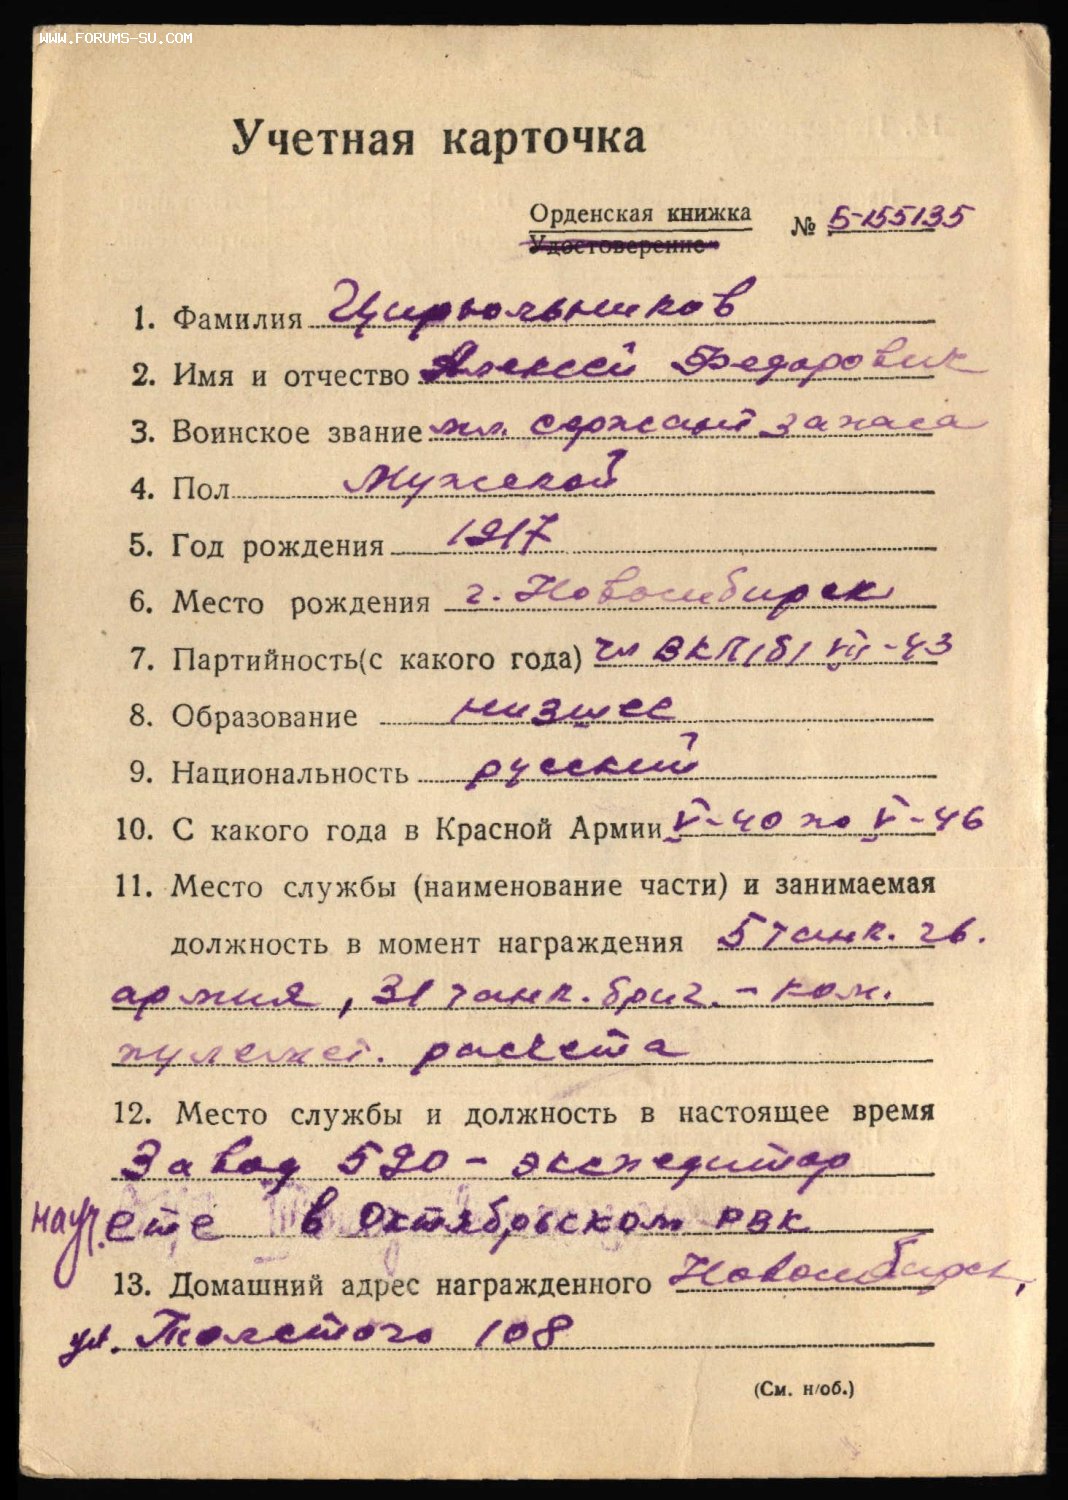 WWW.FORUMS-SU.COM
Учетная карточка
Орденская книжка № Б-155135
Удостоверение
1. Фамилия Цирюльников
2. Имя и отчество Алексей Федорович
3. Воинское звание мл. сержант запаса
4. Пол Мужской
5. Год рождения 1917
6. Место рождения г. Новосибирск
7. Партийность (с какого года) чл ВКП(б) VII-43
8. Образование низшее
9. Национальность русский
10. С какого года в Красной Армии V-40 по V-46
11. Место службы (наименование части) и занимаемая
должность в момент награждения 5 танк. гв.
армия, 31 танк. бриг. – ком.
пулемет. расчета
12. Место службы и должность в настоящее время
Завод 590 – экспедитор
на уч. в Октябрьском РВК
13. Домашний адрес награжденного Новосибирск,
ул. Толстого 108
(См. н/об.)